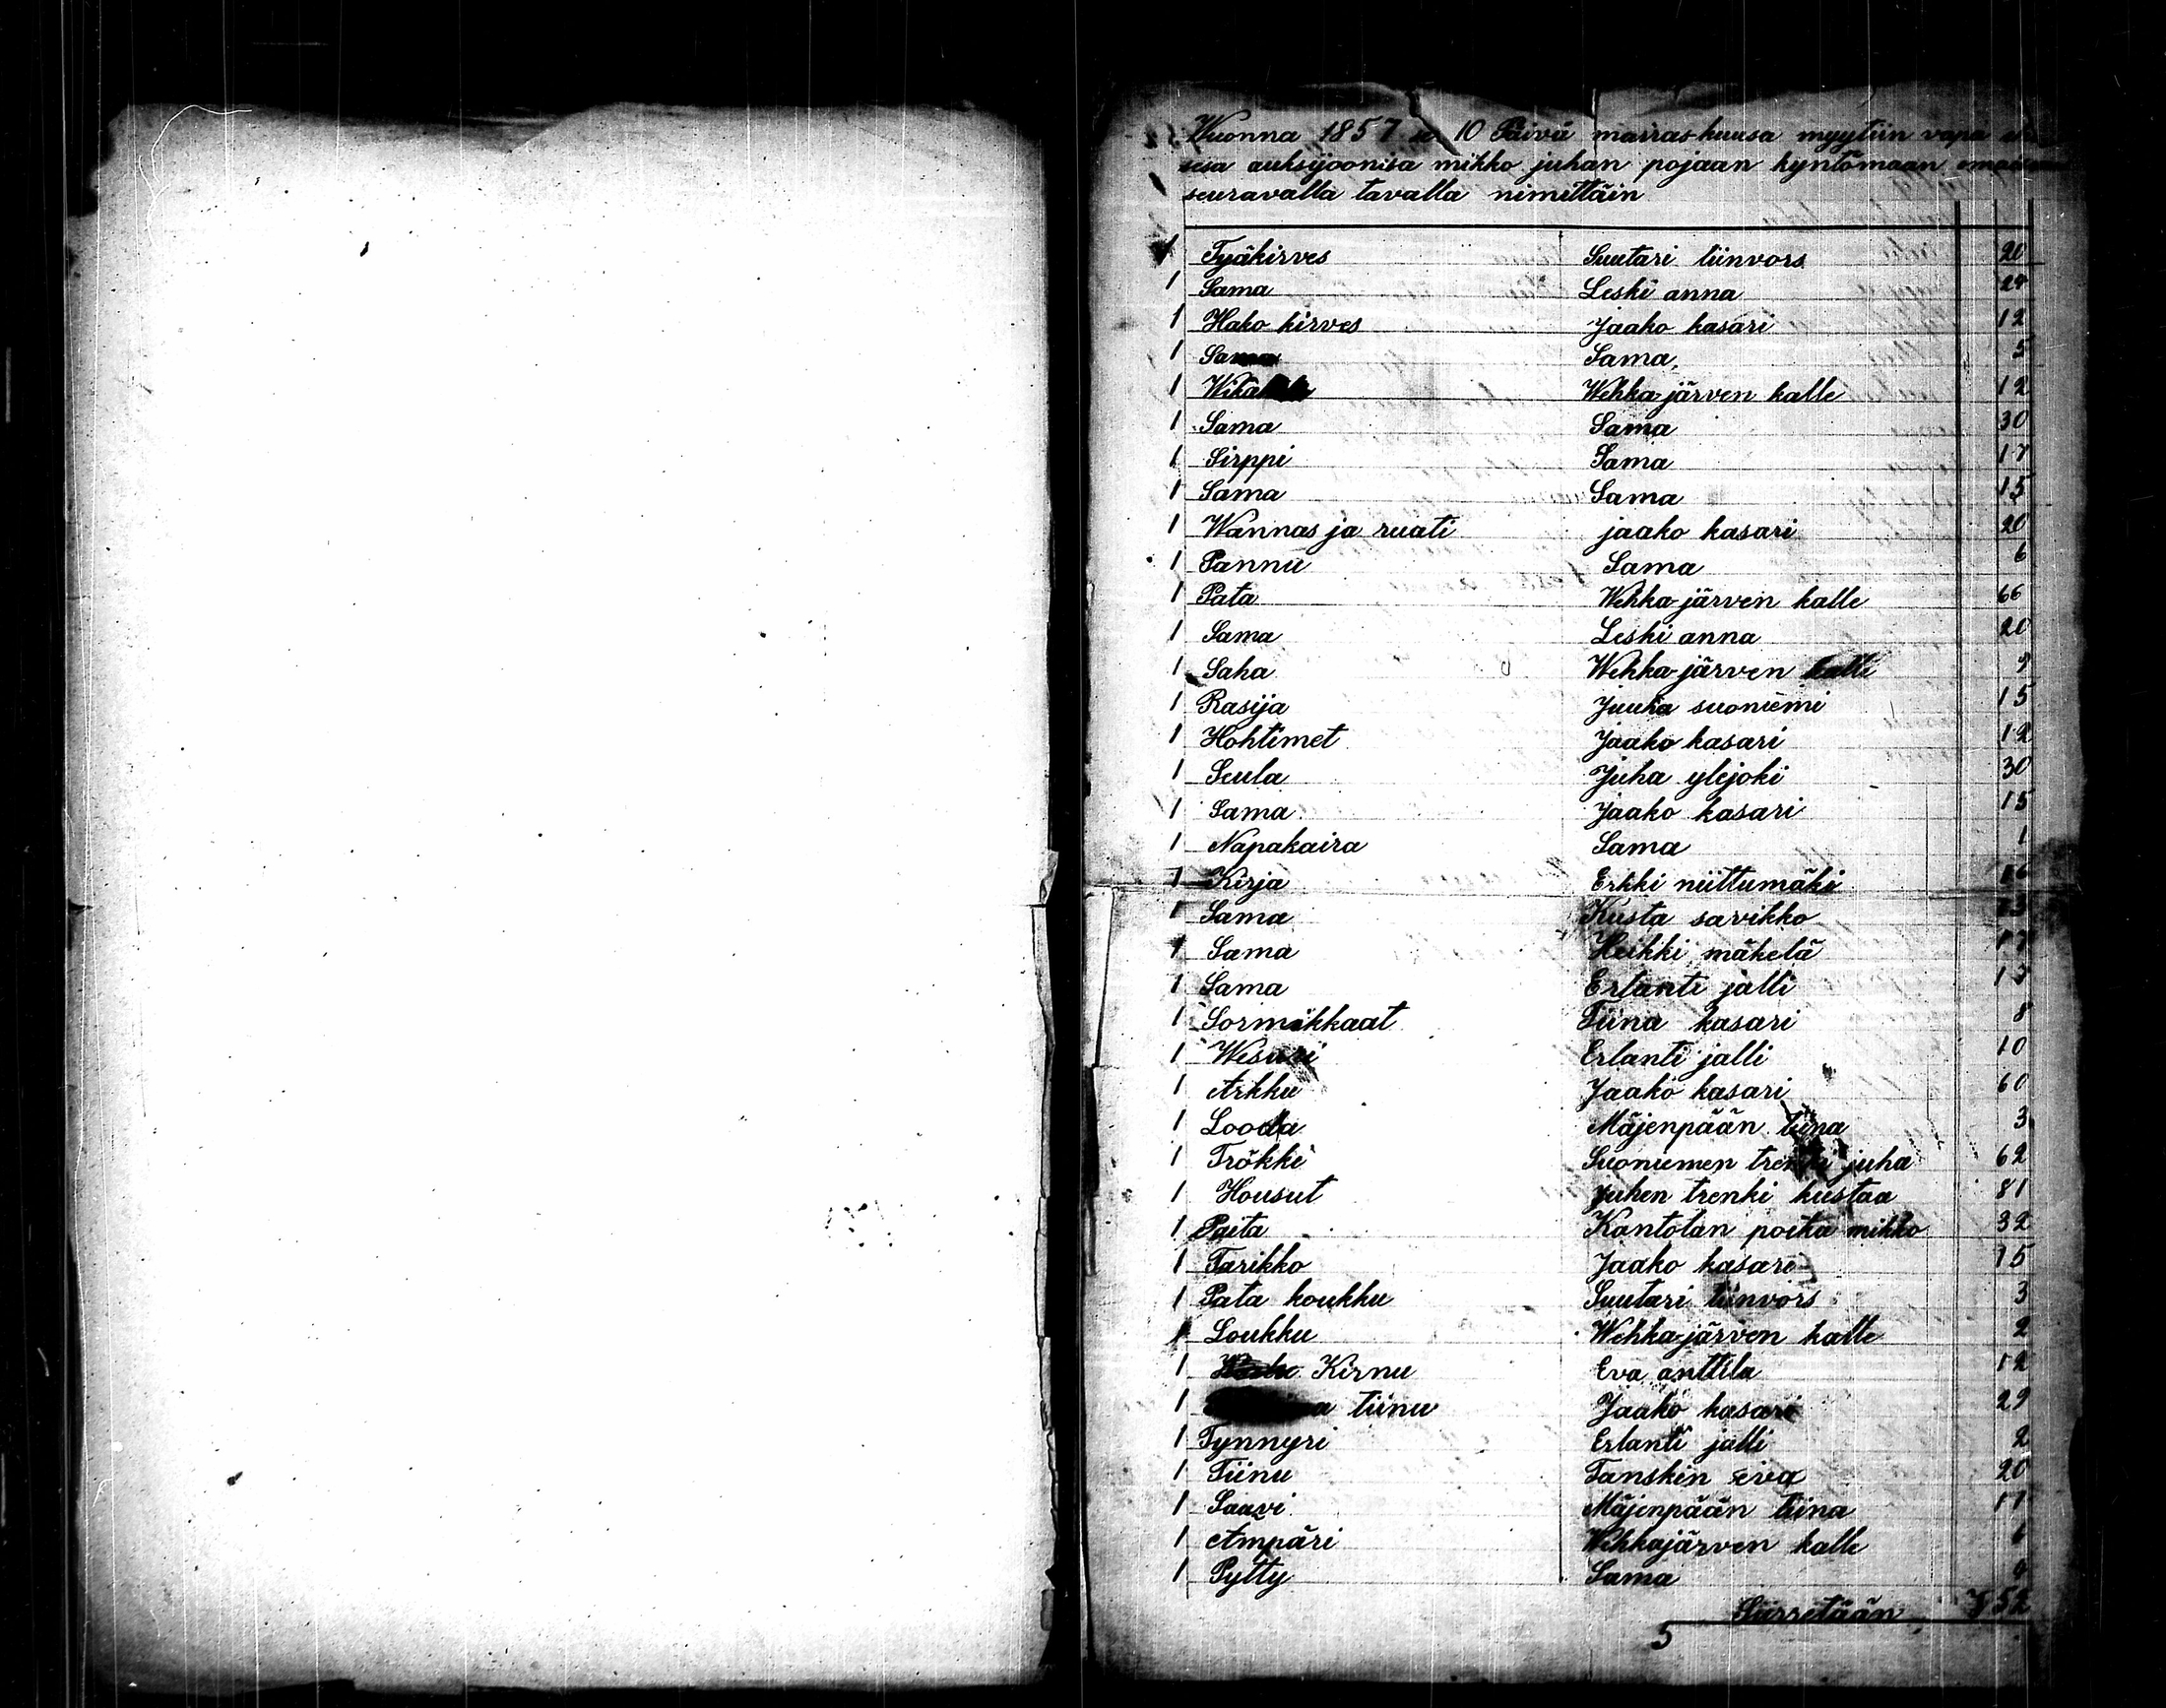 Wuonna 1857 10 Päivä marraskuusa myytiin vapa
sesa auksijoonisa mikko juhan pojaan kyntömaan
seuravalla tavalla nimittäin
1 Tyäkirves Suutari tiinvors 20
1 Sama Leski anna 24
1 Hako kirves Jaako kasari 12
1 Sama Sama, 5
1 Wehka-järven kalle 12
1 Sama Sama 30
1 Sirppi Sama 17
1 Sama Sama 15
1 Wannas ja ruati jaako kasari 20
1 Pannu Sama 6
1 Pata Wehka-järven kalle 66
1 Sama Leski anna 20
1 Saha Wehka-järven kalle 9
1 Rasija Juuha suoniemi 15
1 Hohtimet Jaako kasari 12
1 Seula Juha ylejoki 30
1 Sama Jaako kasari 15
1 Napakaira Sama 1
1 Kirja Erkki niittumäki 16
1 Sama Kusta savikko 13
1 Sama Heikki mäkelä 17
1 Sama Erlanti jalli 13
1 Sormikkaat Tiina kasari 8
1 Wesuri Erlanti jalli 10
1 Arkku Jaako kasari 60
1 Looda Mäjenpään tiina 3
1 Trökki Suoniemen trenki juha 62
1 Housut Juhen trenki kustaa 81
1 Paita Kantolan poika mikko 32
1 Tarikko Jaako kasari 15
1 Pata koukku Suutari tiinvors 3
1 Loukku Wehka-järven kalle 2
1 Kirnu Eva anttila 12
1 tiinu Jaako kasari 29
1 Tynnyri Erlanti jalli 2
1 Tiinu Tanskin eiva 20
1 Saavi Mäjenpään tiina 11
1 Ampäri Wehkajärven kalle 6
1 Pytty Sama
Siirretään 752
5